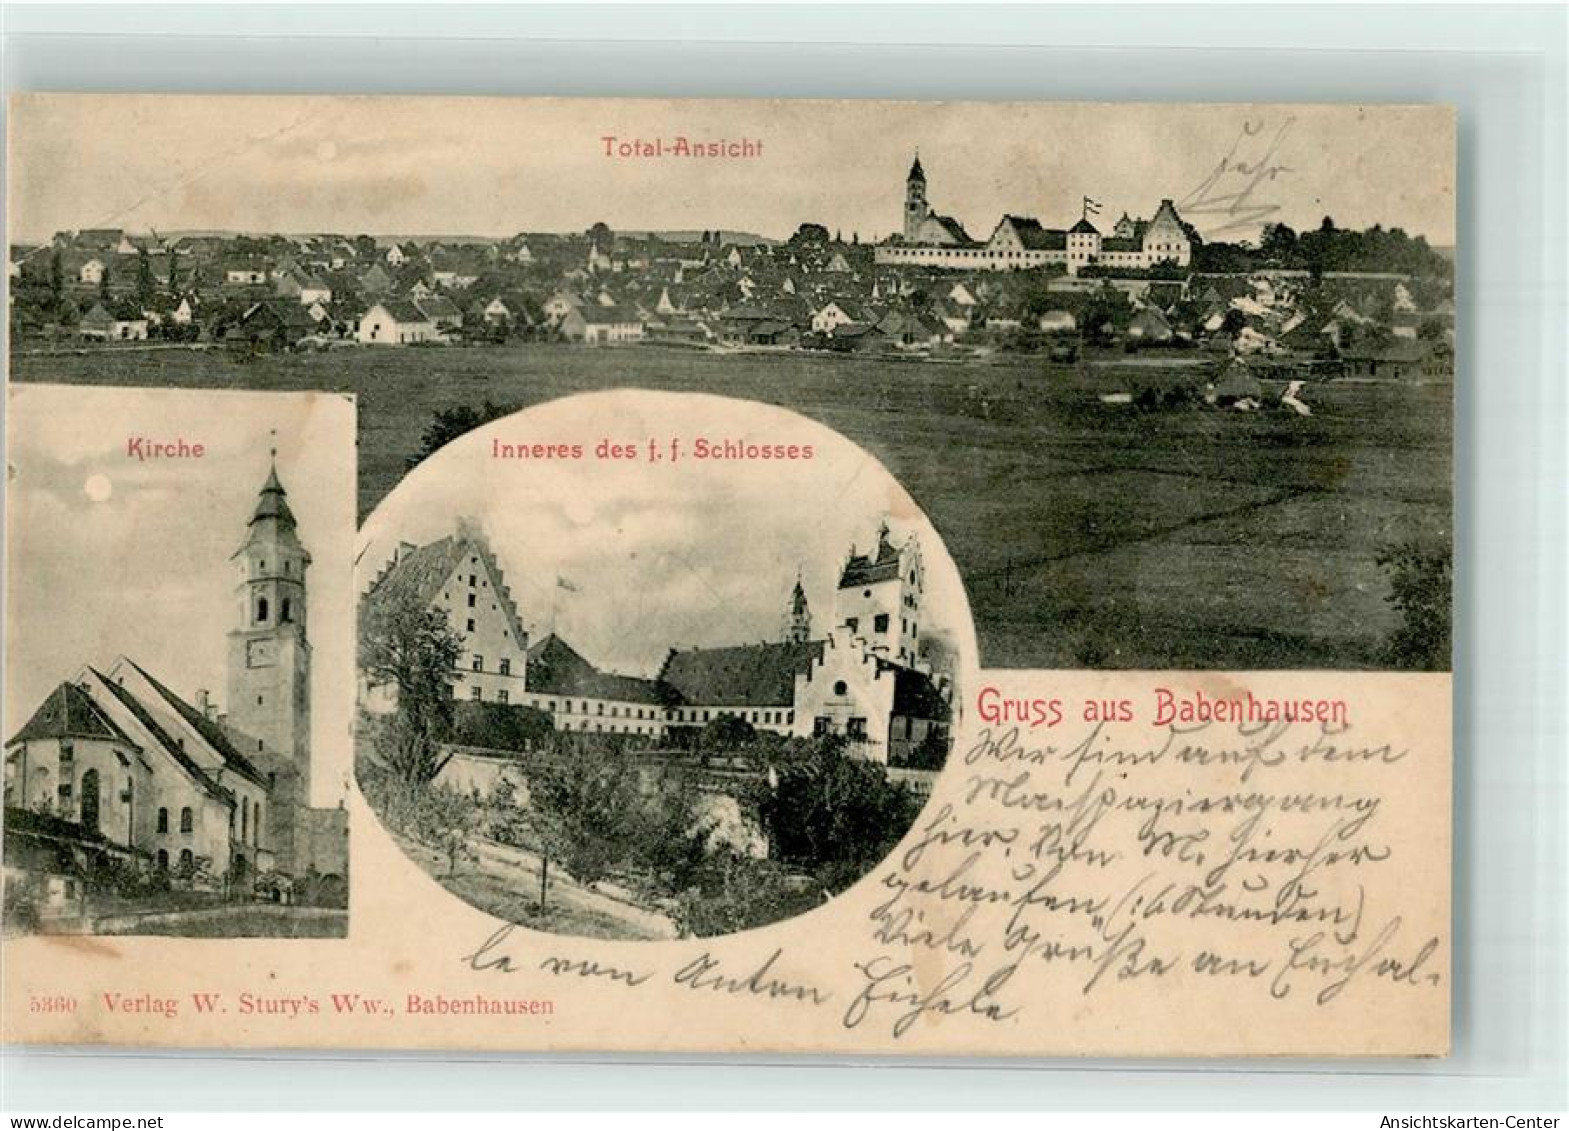 Total-Ansicht
Kirche
Inneres des f. f. Schlosses
Gruss aus Babenhausen
Wir sind auf dem
Maispaziergang
hier. Von M. hierher
gelaufen (:6 Stunden)
Viele Grüße an Euch al-
le von Anton Eichele
5360 Verlag W. Stury's Ww., Babenhausen
Ansichtskarten-Center